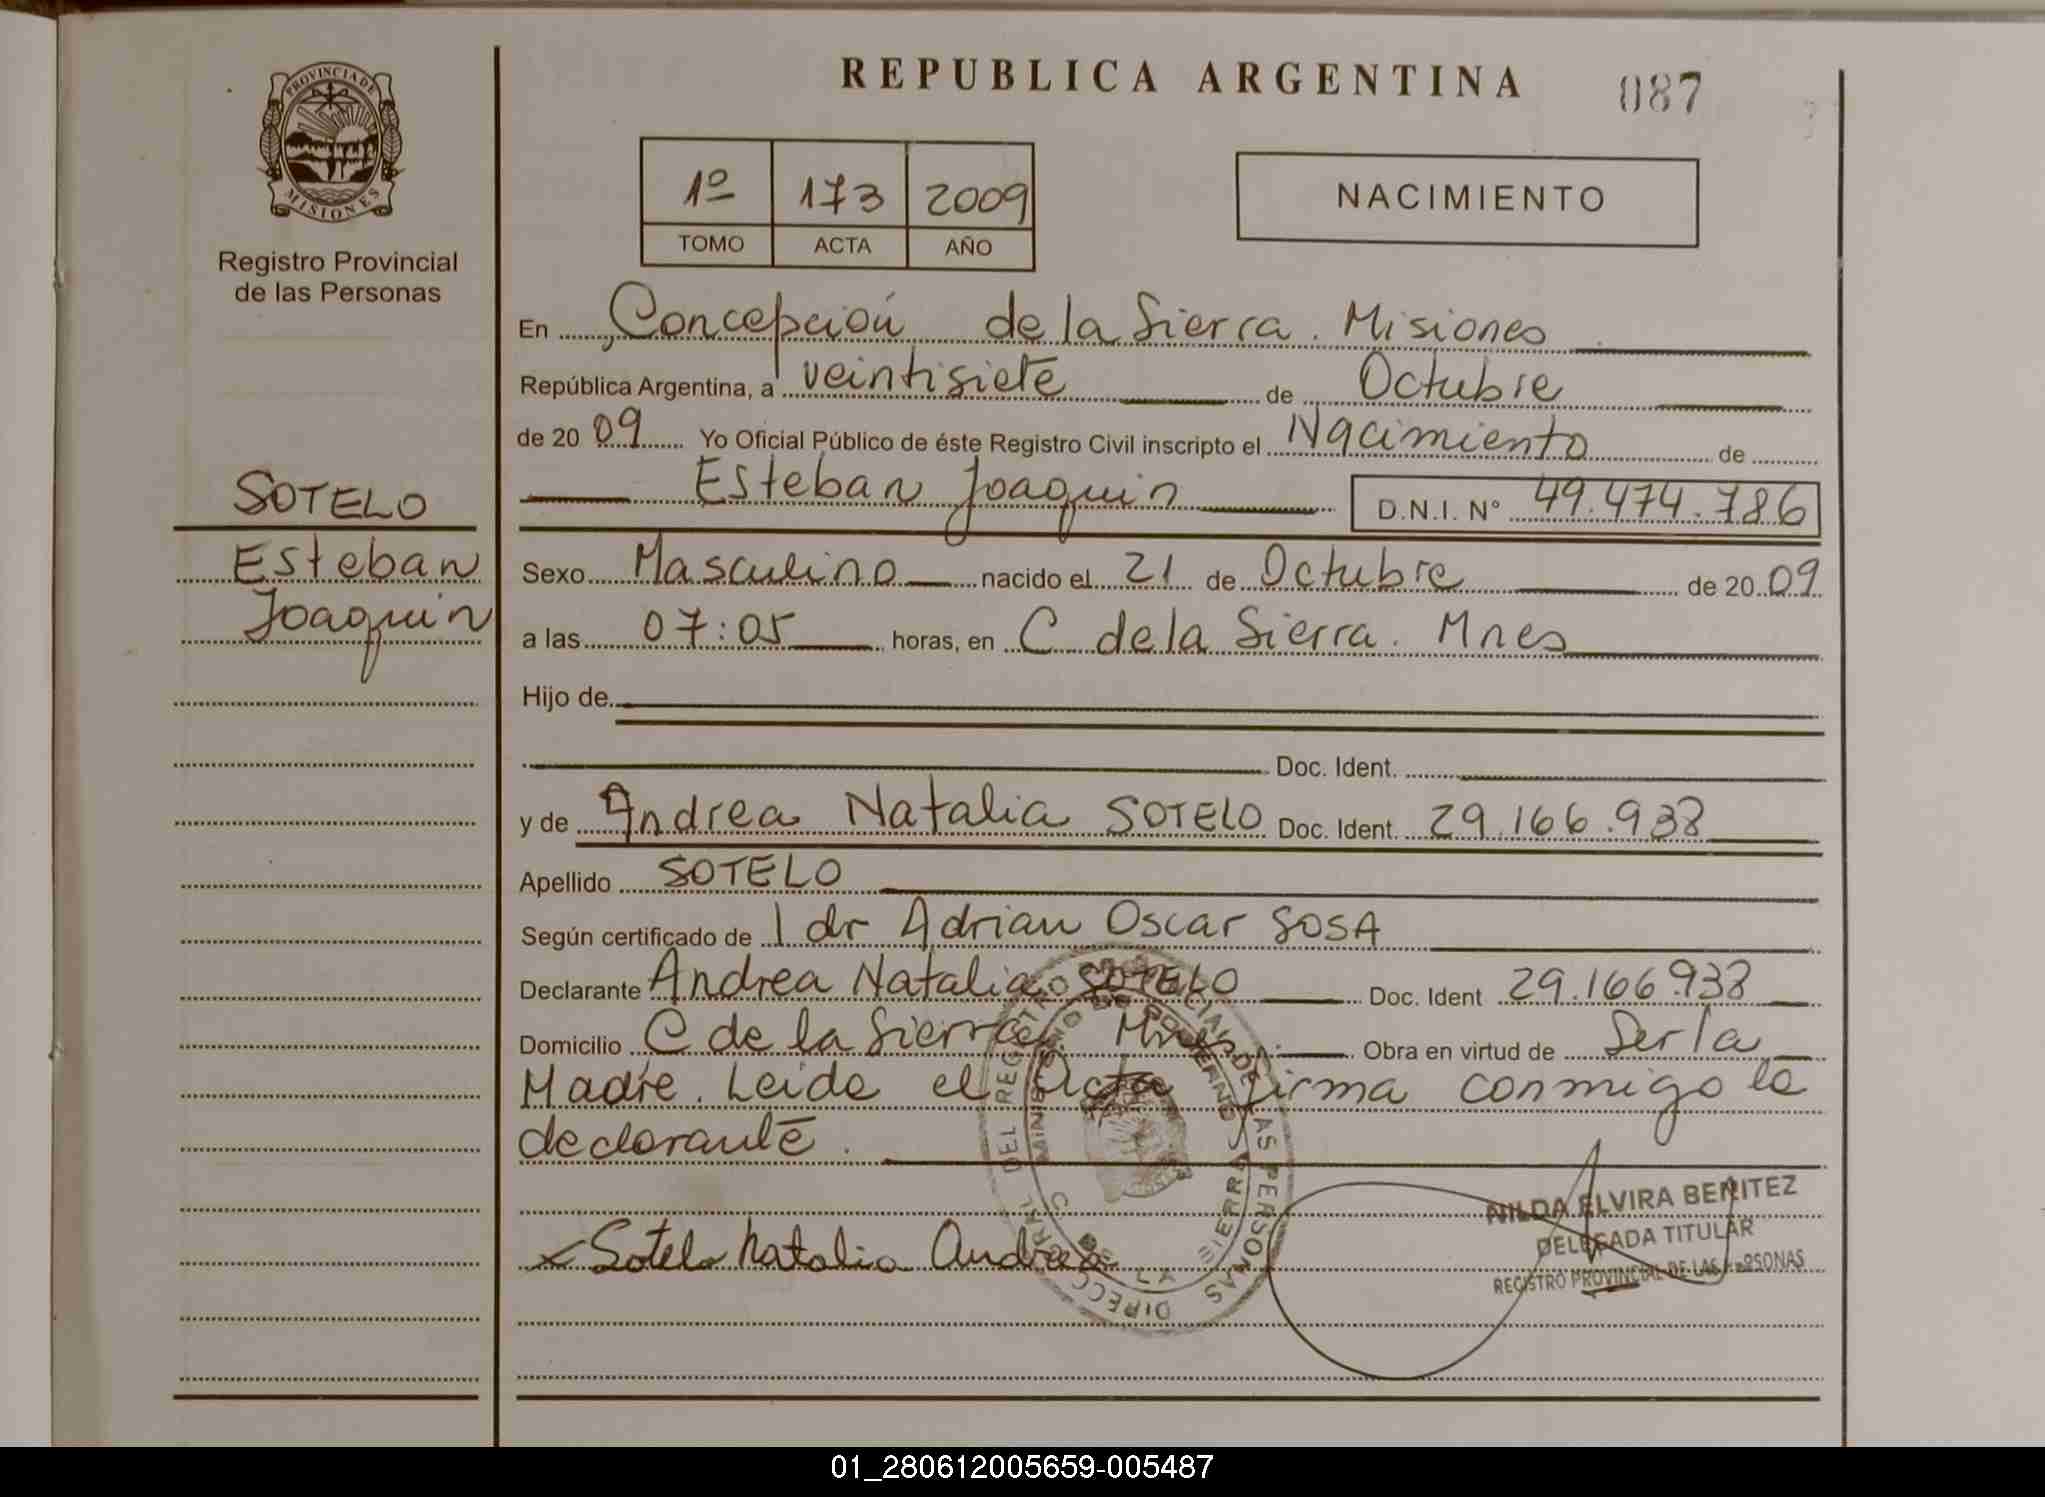 PROVINCIA DE
MISIONES
Registro Provincial
de las Personas
SOTELO
Esteban
Joaquin
REPUBLICA ARGENTINA
087
1º 173 2009
TOMO ACTA AÑO
NACIMIENTO
En Concepción de la Sierra. Misiones
República Argentina, a veintisiete de Octubre
de 2009 Yo Oficial Público de éste Registro Civil inscripto el Nacimiento de
Esteban Joaquin D.N.I. N° 49.474.786
Sexo Masculino nacido el 21 de Octubre de 2009
a las 07:05 horas, en C de la Sierra. Mnes
Hijo de
Doc. Ident.
y de Andrea Natalia SOTELO Doc. Ident. 29.166.938
Apellido SOTELO
Según certificado de 1 dr Adrian Oscar SOSA
Declarante Andrea Natalia SOTELO Doc. Ident 29.166.938
Domicilio C de la Sierra Mnes Obra en virtud de Ser la
Madre. Leida el Acta firma conmigo la
declarante.
Sotelo Natalia Andrea
NILDA ELVIRA BENITEZ
DELEGADA TITULAR
REGISTRO PROVINCIAL DE LAS PERSONAS
MINISTERIO DE GOBIERNO
C DE LA SIERRA
01_280612005659-005487